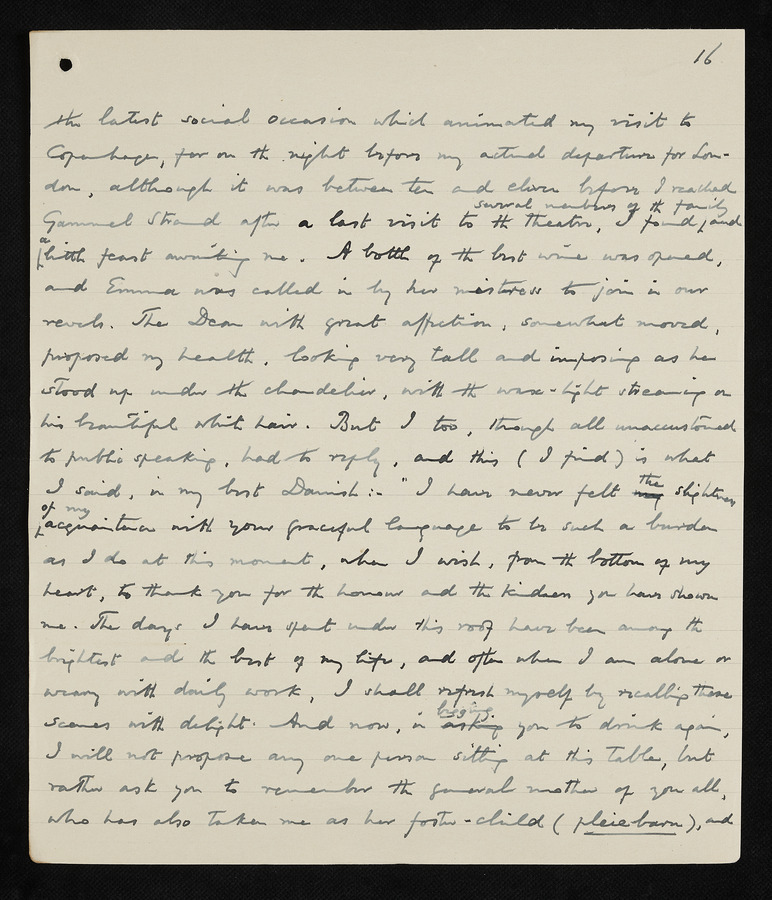 16
the latest social occasion which animated my visit to
Copenhagen, for on the night before my actual departure for Lon-
don, although it was between ten and eleven before I reached
several members of the family
Gammel Strand after a last visit to the theatre, I found, and
a
little feast awaiting me. A bottle of the best wine was opened,
and Emma was called in by her mistress to join in our
revels. The Dean with great affection, somewhat moved,
proposed my health, looking very tall and imposing as he
stood up under the chandelier, with the wax-light streaming on
his beautiful white hair. But I too, though all unaccustomed
to public speaking, had to reply, and this (I find) is what
the
I said, in my best Danish:- "I have never felt my slightness
of my
acquaintance with your graceful language to be such a burden
as I do at this moment, when I wish, from the bottom of my
heart, to thank you for the honour and the kindness you have shown
me. The days I have spent under this roof have been among the
brightest and the best of my life, and often when I am alone or
weary with daily work, I shall refresh myself by recalling these
begging
scenes with delight. And now, in asking you to drink again,
I will not propose any one person sitting at this table, but
rather ask you to remember the general mother of you all,
who has also taken me as her foster-child (pleiebarn), and